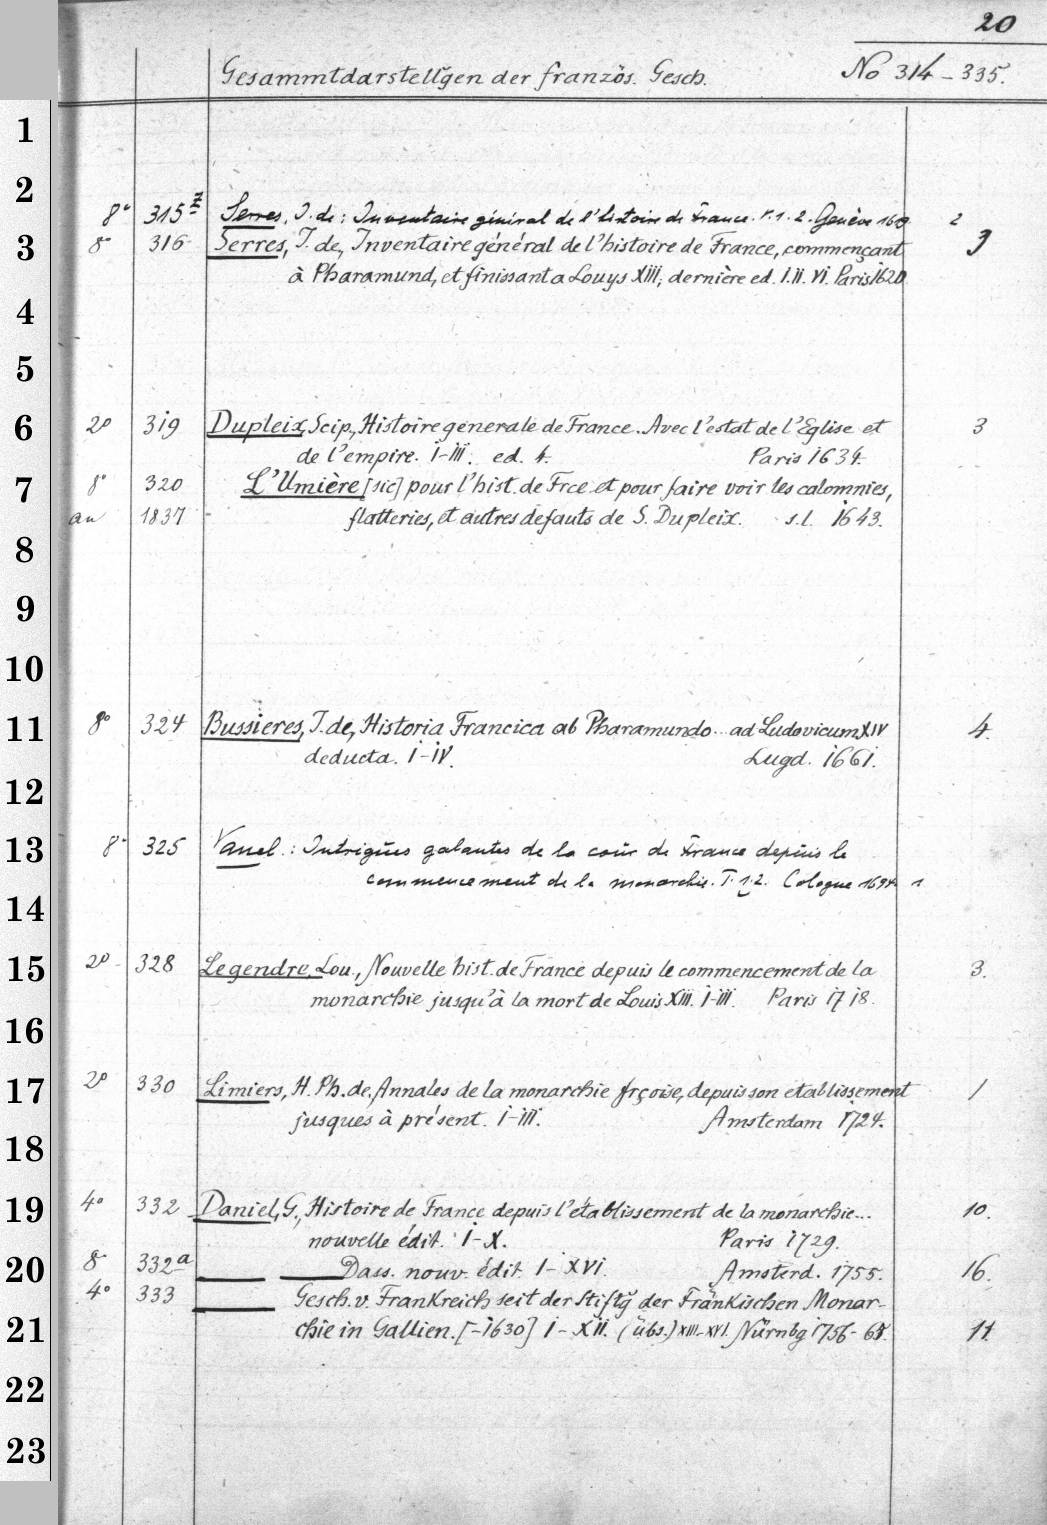 20
Gesammtdarstellgen der französ. Gesch. No 314-335.
1
2
8° 315 Serres, J. de: Inventaire général de l'histoire de France. T. 1. 2. Genève 2
3 8° 316 Serres, J. de, Inventaire général de l'histoire de France, commençant 3
à Pharamund, et finissant a Louys XIII; dernière ed. I. II. VI. Paris 1620
4
5
6 2° 319 Dupleix, Scip., Histoire generale de France. Avec l'estat de l'Eglise et 3
de l'empire. I-III. ed. 4. Paris 1634.
7 8° 320 L'Umière [sic] pour l'hist. de Frce et pour faire voir les calomnies,
an 1837 flatteries, et autres defauts de S. Dupleix. s.l. 1643.
8
9
10
11 8° 324 Bussieres, J. de, Historia Francica ab Pharamundo... ad Ludovicum XIV 4.
deducta. I-IV. Lugd. 1661.
12
13 8° 325 Vanel: Intrigues galantes de la cour de France depuis le
commencement de la monarchie. T. 1. 2. Cologne 1694. 1
14
15 2° 328 Legendre, Lou., Nouvelle hist. de France depuis le commencement de la 3.
monarchie jusqu'à la mort de Louis XIII. I-III. Paris 1718.
16
17 2° 330 Limiers, H. Ph. de, Annales de la monarchie frçoise, depuis son etablissement 1
jusques à présent. I-III. Amsterdam 1724.
18
19 4° 332 Daniel, G., Histoire de France depuis l'établissement de la monarchie... 10.
nouvelle édit. I-X. Paris 1729.
20 8° 332a — — Dass. nouv. édit. I-XVI. Amsterd. 1755. 16.
4° 333 — Gesch. v. Frankreich seit der Stiftg der Fränkischen Monar-
21 chie in Gallien. [-1630] I-XII. (übs.) XIII-XVI. Nürnbg 1756-65. 11.
22
23